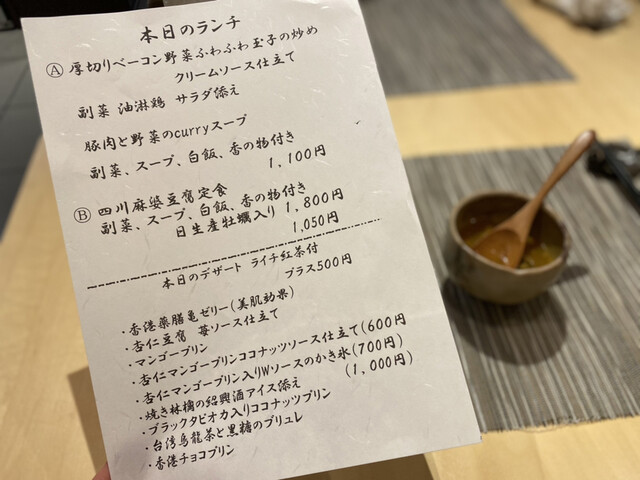 本日のランチ
Ⓐ 厚切りベーコン野菜ふわふわ玉子の炒め
クリームソース仕立て
副菜 油淋鶏 サラダ添え
豚肉と野菜のcurryスープ
副菜、スープ、白飯、香の物付き
1,100円
Ⓑ 四川麻婆豆腐定食
副菜、スープ、白飯、香の物付き
日生産牡蠣入り 1,800円
1,050円
本日のデザート ライチ紅茶付
プラス500円
・香港薬膳亀ゼリー(美肌効果)
・杏仁豆腐 苺ソース仕立て
・マンゴープリン
・杏仁マンゴープリンココナッツソース仕立て(600円
・杏仁マンゴープリン入りWソースのかき氷(700円)
・焼き林檎の紹興酒アイス添え (1,000円)
・ブラックタピオカ入りココナッツプリン
・台湾烏龍茶と黒糖のブリュレ
・香港チョコプリン